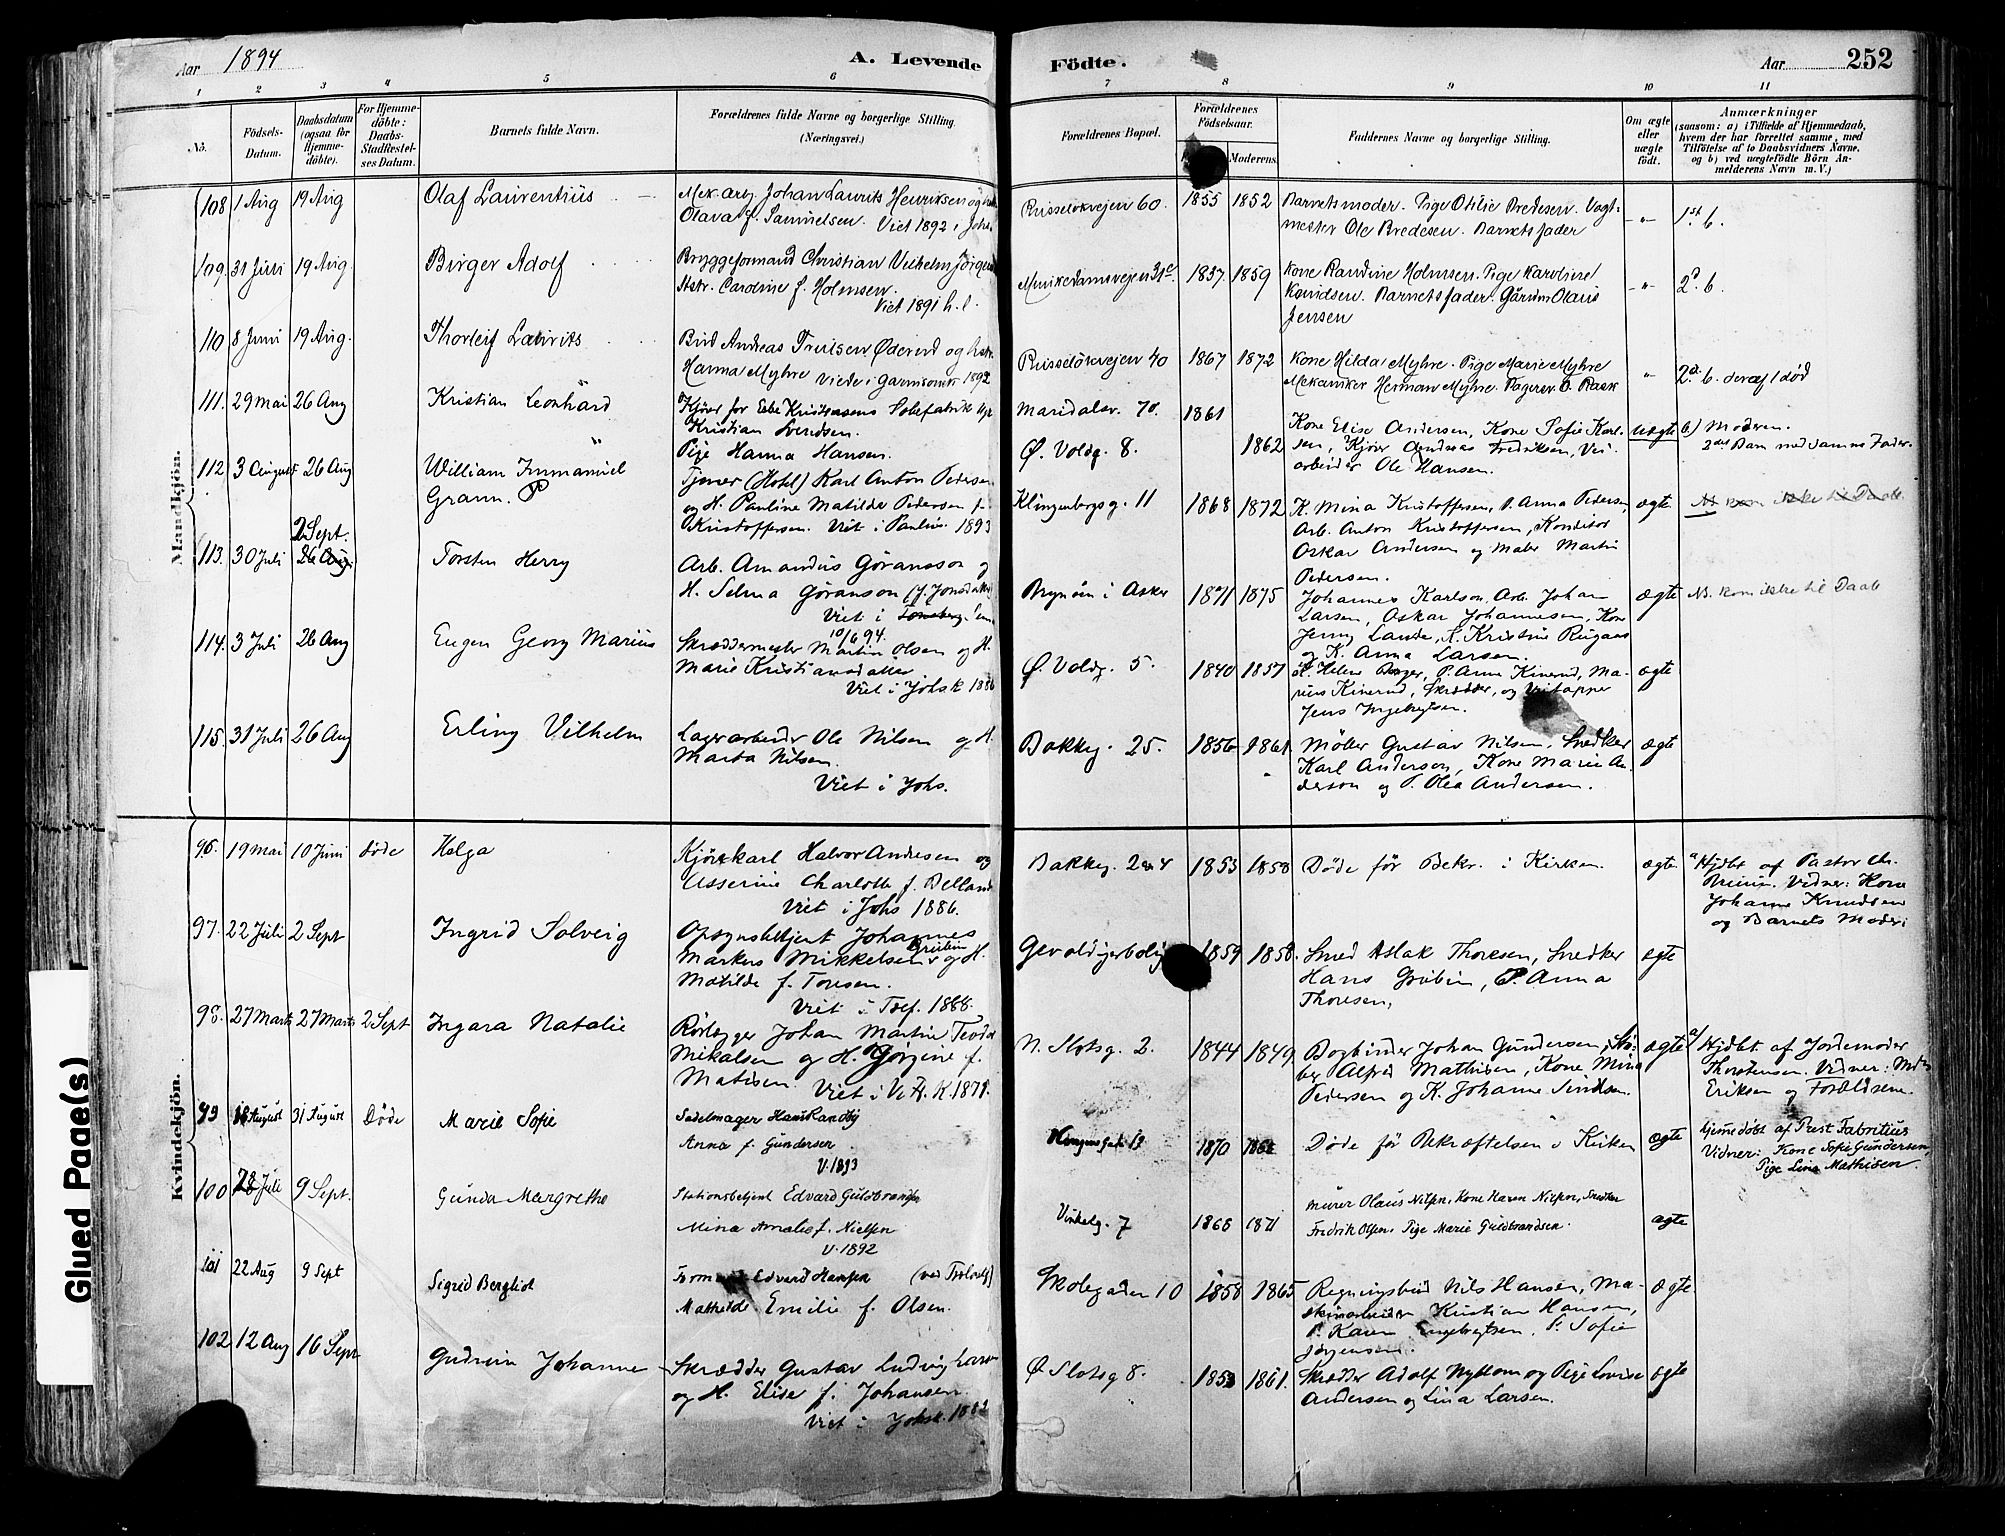 Aar 1894
A. Levende Födte.
Aar 252
1 2 3 4 5 6 7 8 9 10 11
No.
Födsels-Datum.
Daabsdatum (ogsaa for Hjemmedöbte).
For Hjemmedöbte: Daabs-Stadfæstelses Datum.
Barnets fulde Navn.
Forældrenes fulde Navne og borgerlige Stilling.
(Næringsvei.)
Forældrenes Bopæl.
Forældrenes Födselsaar.
Moderens.
Faddernes Navne og borgerlige Stilling.
Om ægte eller uægte födt.
Anmærkninger
(saasom: a) i Tilfælde af Hjemmedaab, hvem der har forrettet samme, med Tilföielse af to Daabsvidners Navne, og b) ved uægtefödte Börn Anmelderens Navn m. V.)
Mandkjön.
108 1 Aug 19 Aug Olaf Laurentius
Mek. arb. Johan Laurits Henriksen og
Olava f. Samuelsen. Viet 1892 i Johs
Ruseløkveien 60. 1855 1852
Barnets moder. Pige Othilie Bredesen. Vagt-
mester Ole Bredesen. Barnets fader
1st b.
109. 31 Juli 19 Aug. Birger Adolf
Bryggeformand Christian Vilhelm
Hstr. Caroline f. Holmsen.
Viet 1891 h. l.
Munkedamsveien 31c 1837. 1859
Kone Randine Holmsen. Pige Karoline
Knudsen. Barnets fader. Olaus
Jensen
2d b.
110 8 Juni 19 Aug. Thorleif Laurits
Bud Andreas Trulsen Øderud og hstr.
Hanna Myhre Viede i Garnisonsk 1892
Ruseløkveien 40 1867 1872
Kone Hilda Myhre. Pige Marie Myhre
Mekaniker Herman Myhre.
2d b. deraf 1 død
111. 29 Mai 26 Aug Kristian Leonhard
Kjører for Ebbe Kristiansens
Kristian Svendsen.
Pige Hanna Hansen.
Maridalsv. 70. 1861
Ø. Voldg. 8. 1862
Kone Elise Andersen, Kone Sofie Karl-
sen, Kjører Andreas Fredriksen, Vei-
arbeider Ole Hansen.
uægte b) Moderen.
2det Barn med samme Fader.
112 3 August 26 Aug William Immanuel
Grann. P
Tjener (Hotel) Karl Anton Pedersen
og H. Pauline Matilde Pedersen f.
Kristoffersen. Viet i Paulus. 1893
Klingenbergsg. 11 1868 1872
K. Mina Kristoffersen, P. Anna Pedersen
Arb. Anton Kristoffersen, Konditor
Oskar Andersen og Maler Martin
Pedersen.
ægte
2 Sept.
113. 30 Juli 26 Aug. Torsten Herry
Arb. Amandus Göransson og
H. Selma Göranson
Viet i
10/6 94.
i Asker 1871 1875
Johannes Karlson, Arb. Johan
Larsen, Oskar Johannesen, Kone
Jenny Lande, K. Kristine
og K. Anna Larsen.
ægte NB. kom ikke til Daab
114. 3 Juli 26 Aug Eugen Georg Marius
Skræddermester Martin Olsen og H.
Marie Kristiansdatter
Viet i Johs K 1886
Ø. Voldg. 5. 1840 1857
K. Helene Berger, P. Anne Kinerud, Ma-
rius Kinerud, Skrædder, og
Jens Ingebrigtsen.
ægte
115. 31 Juli 26 Aug Erling Vilhelm
Lagerarbeider Ole Nilsen og H.
Marta Nilsen.
Viet i Johs.
Bakkeg. 25. 1856 1861
Møller Gustav Nilsen, Snedker
Karl Anderson, Kone Marie An-
derson og P. Olea Andersen.
ægte
Kvindekjön.
96. 19 Mai 10 Juni døde Helga
Kjørekarl Halvor Andresen og
Asserine Charlotte f. Belland
Viet i Johs 1886.
Bakkeg. 2 1853 1858
Døde før Bekr. i Kirken.
ægte. a Hjdbt af Pastor Chr.
Bruun. Vidner: Kone
Johanne Knudsen
og Barnets Moder
97. 22 Juli 2 Sept Ingrid Solveig
Opsynsbetjent Johannes
Markus Mikkelsen Grübin og H.
Matilde f. Toresen.
Viet i Tref. 1888.
Gevaldigerbolig 1859 1858.
Smed Aslak Thoresen, Snedker
Hans Grübin, P. Anna
Thoresen,
ægte
98. 27 Marts 27 Marts 2 Sept Ingara Natalie
Rørlægger Johan Martin
Mikalsen og H. Jørgine f.
Matisen. Viet i V. A. K. 1871.
N. Slotsg. 2. 1844 1849
Bogbinder Johan Gundersen,
Alfred Mathisen, Kone Mina
Pedersen og K. Johanne
ægte a) Hjdbt. af Jordemoder
Thorstensen. Vidner:
Eriksen og Forældrene.
99 18 August 31 August Døde Marie Sofie
Sadelmager Hans Randby
Anna f. Gundersen
V. 1893
Kongensgade 13 1870
Døde før Bekræftelsen i Kirken
ægte Hjemmedøbt af Prest Fabritius
Vidner: Kone Sofie Gundersen,
Pige Lina Mathisen
100 28 Juli 9 Sept. Gunda Margrethe
Stationsbetjent Edvard Guldbrandsen
Mina Amalie f. Nielsen
V. 1892
Vinkelg. 7 1868 1871
Murer Olaus Nilsen, Kone Karen Nilsen, Snedker
Fredrik Olsen, Pige Marie Guldbrandsen.
ægte
101 22 Aug 9 Sept Sigrid Bergliot
Edvard Hansen
Mathilde Emilie f. Olsen.
Skolegaden 10 1858 1865
Regningsbud Nils Hansen, Ma-
skinarbeider Kristian Hansen,
P. Karen Engebrigtsen, P. Sofie
Jørgensen.
Ægte
102 12 Aug 16 Sept Gudrun Johanne
Skrædder Gustav Ludvig
og H. Elise f. Johansen
Viet i Johsk. 1882
Ø Slotsg 8. 1853 1861.
Skrædder Adolf Nyblom og Pige Lovise
Andersen og Lina Larsen.
ægte
Glued Page(s)